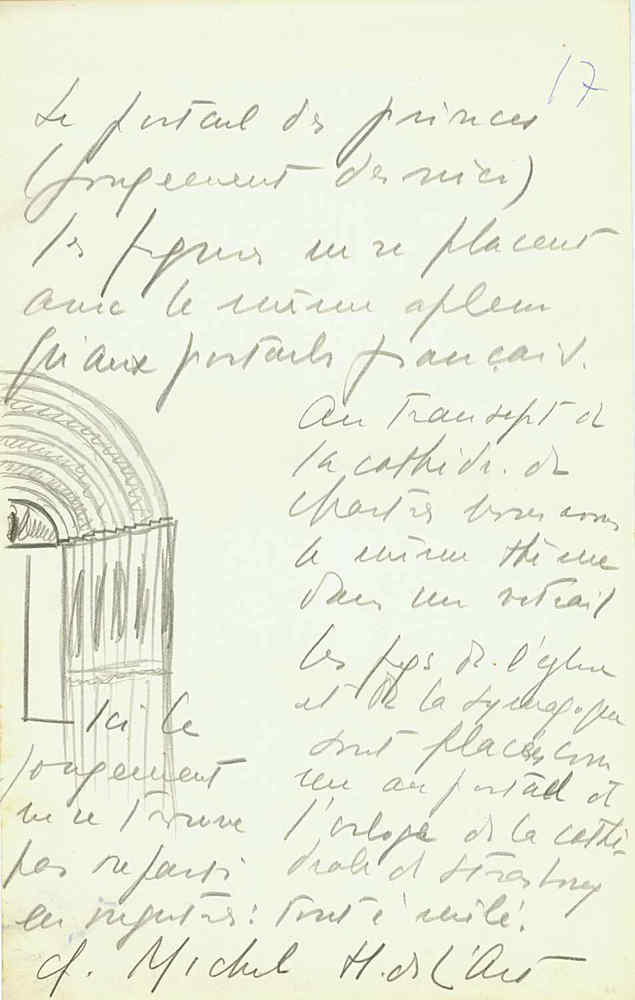 17
Le portail des princes
(jougeement dernier)
les figures ne se placent
avec le même aplem
qu'aux portails français.
Au transept de
la cathédr. de
Chartres trouvons
le même thème
dans un vitrail
Les figs de l'église
et de la synagogue
sont placées com
me au portail et
l'orloge de la cathé-
drale de Strasbourg
Ici le
jougement
ne se trouve
pas reparti
en registres: tout é mêlé.
cf. Michel H. de l'Art